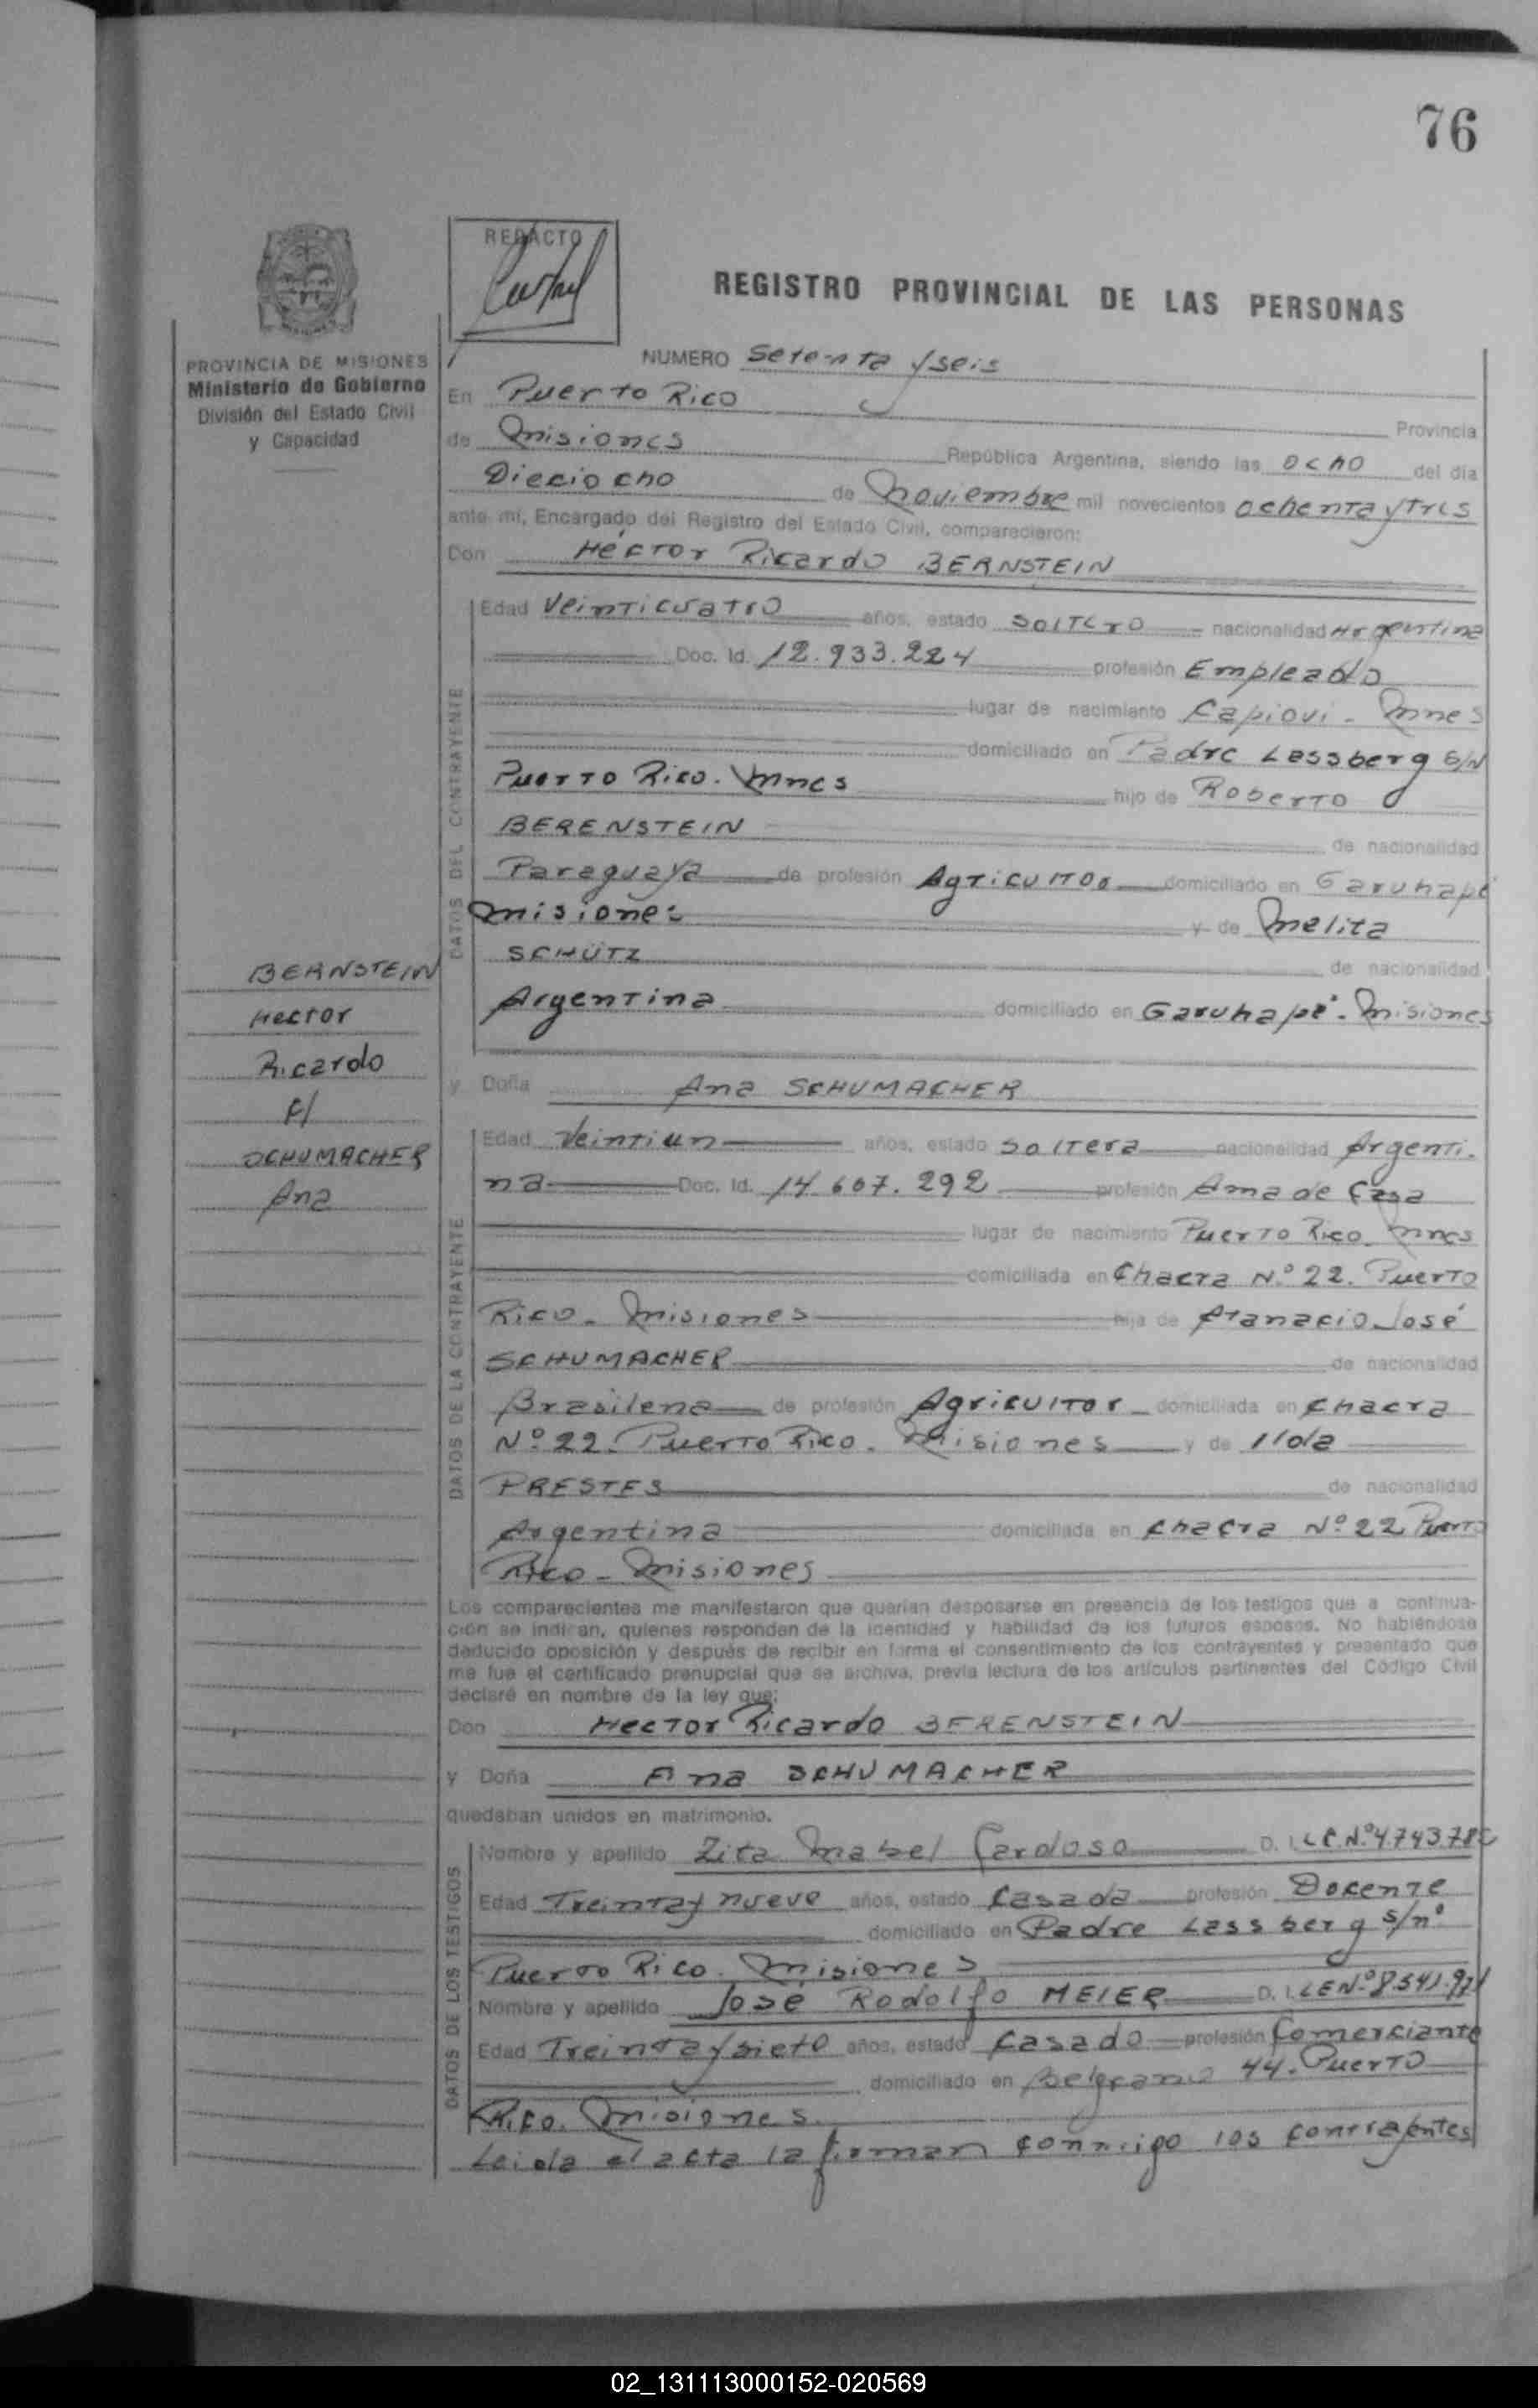 76
REDACTO
REGISTRO PROVINCIAL DE LAS PERSONAS
PROVINCIA DE MISIONES
Ministerio de Gobierno
División del Estado Civil
y Capacidad
NUMERO Setenta y seis
En Puerto Rico
Provincia
de Misiones República Argentina, siendo las ocho del día
Dieciocho de Noviembre mil novecientos ochenta y tres
ante mí, Encargado del Registro del Estado Civil, comparecieron:
Don Héctor Ricardo BERNSTEIN
DATOS DEL CONTRAYENTE
Edad Veinticuatro años, estado soltero nacionalidad Argentina
Doc. Id. 12.933.224 profesión Empleado
lugar de nacimiento Capiovi - Mnes
domiciliado en Padre Lassberg S/N
Puerto Rico. Mnes hijo de Roberto
BERENSTEIN de nacionalidad
Paraguaya de profesión Agricultor domiciliado en Garuhapé
Misiones y de Melita
SCHÜTZ de nacionalidad
Argentina domiciliado en Garuhapé. Misiones
BERNSTEIN
Hector
Ricardo
c/
SCHUMACHER
Ana
y Doña Ana SCHUMACHER
DATOS DE LA CONTRAYENTE
Edad Veintiun años, estado soltera nacionalidad Argenti-
na Doc. Id. 14.607.292 profesión Ama de Casa
lugar de nacimiento Puerto Rico Mnes
domiciliada en Chacra N.º 22. Puerto
Rico - Misiones hija de Atanacio José
SCHUMACHER de nacionalidad
Brasilena de profesión Agricultor domiciliada en Chacra
Nº 22. Puerto Rico. Misiones y de Ilda
PRESTES de nacionalidad
Argentina domiciliada en Chacra Nº 22 Puerto
Rico - Misiones
Los comparecientes me manifestaron que querían desposarse en presencia de los testigos que a continua-
ción se indican, quienes responden de la identidad y habilidad de los futuros esposos. No habiéndose
deducido oposición y después de recibir en forma el consentimiento de los contrayentes y presentado que
me fue el certificado prenupcial que se archiva, previa lectura de los artículos pertinentes del Código Civil
declaré en nombre de la ley que:
Don Hector Ricardo BERENSTEIN
y Doña Ana SCHUMACHER
quedaban unidos en matrimonio.
DATOS DE LOS TESTIGOS
Nombre y apellido Zita Mabel Cardoso D. I. L.C. N.º 4.743.78
Edad Treinta y nueve años, estado Casada profesión Docente
domiciliado en Padre Lassberg s/nº
Puerto Rico. Misiones
Nombre y apellido José Rodolfo MEIER D. I. LE Nº 8.541.971
Edad Treinta y siete años, estado Casado profesión Comerciante
domiciliado en Belgrano 44. Puerto
Rico. Misiones
Leida el acta la firman conmigo los contrayentes
02_131113000152-020569